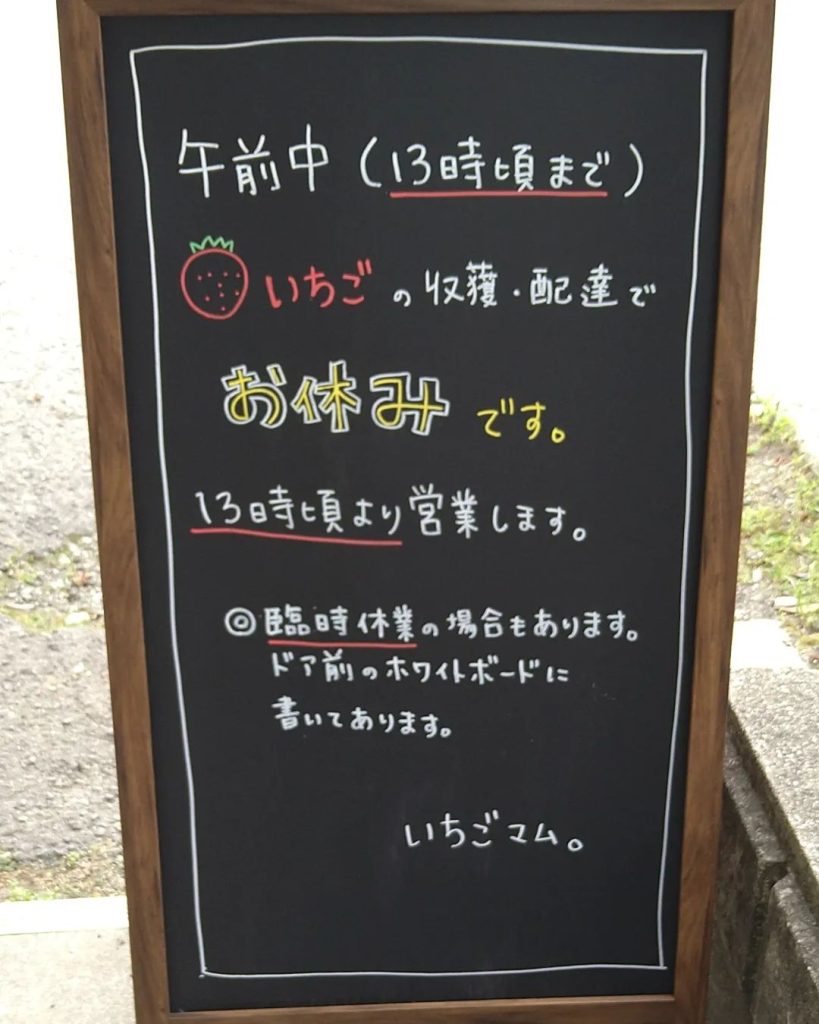 午前中（13時頃まで）
いちごの収穫・配達で
お休みです。
13時頃より営業します。
◎臨時休業の場合もあります。
ドア前のホワイトボードに
書いてあります。
いちごマム。